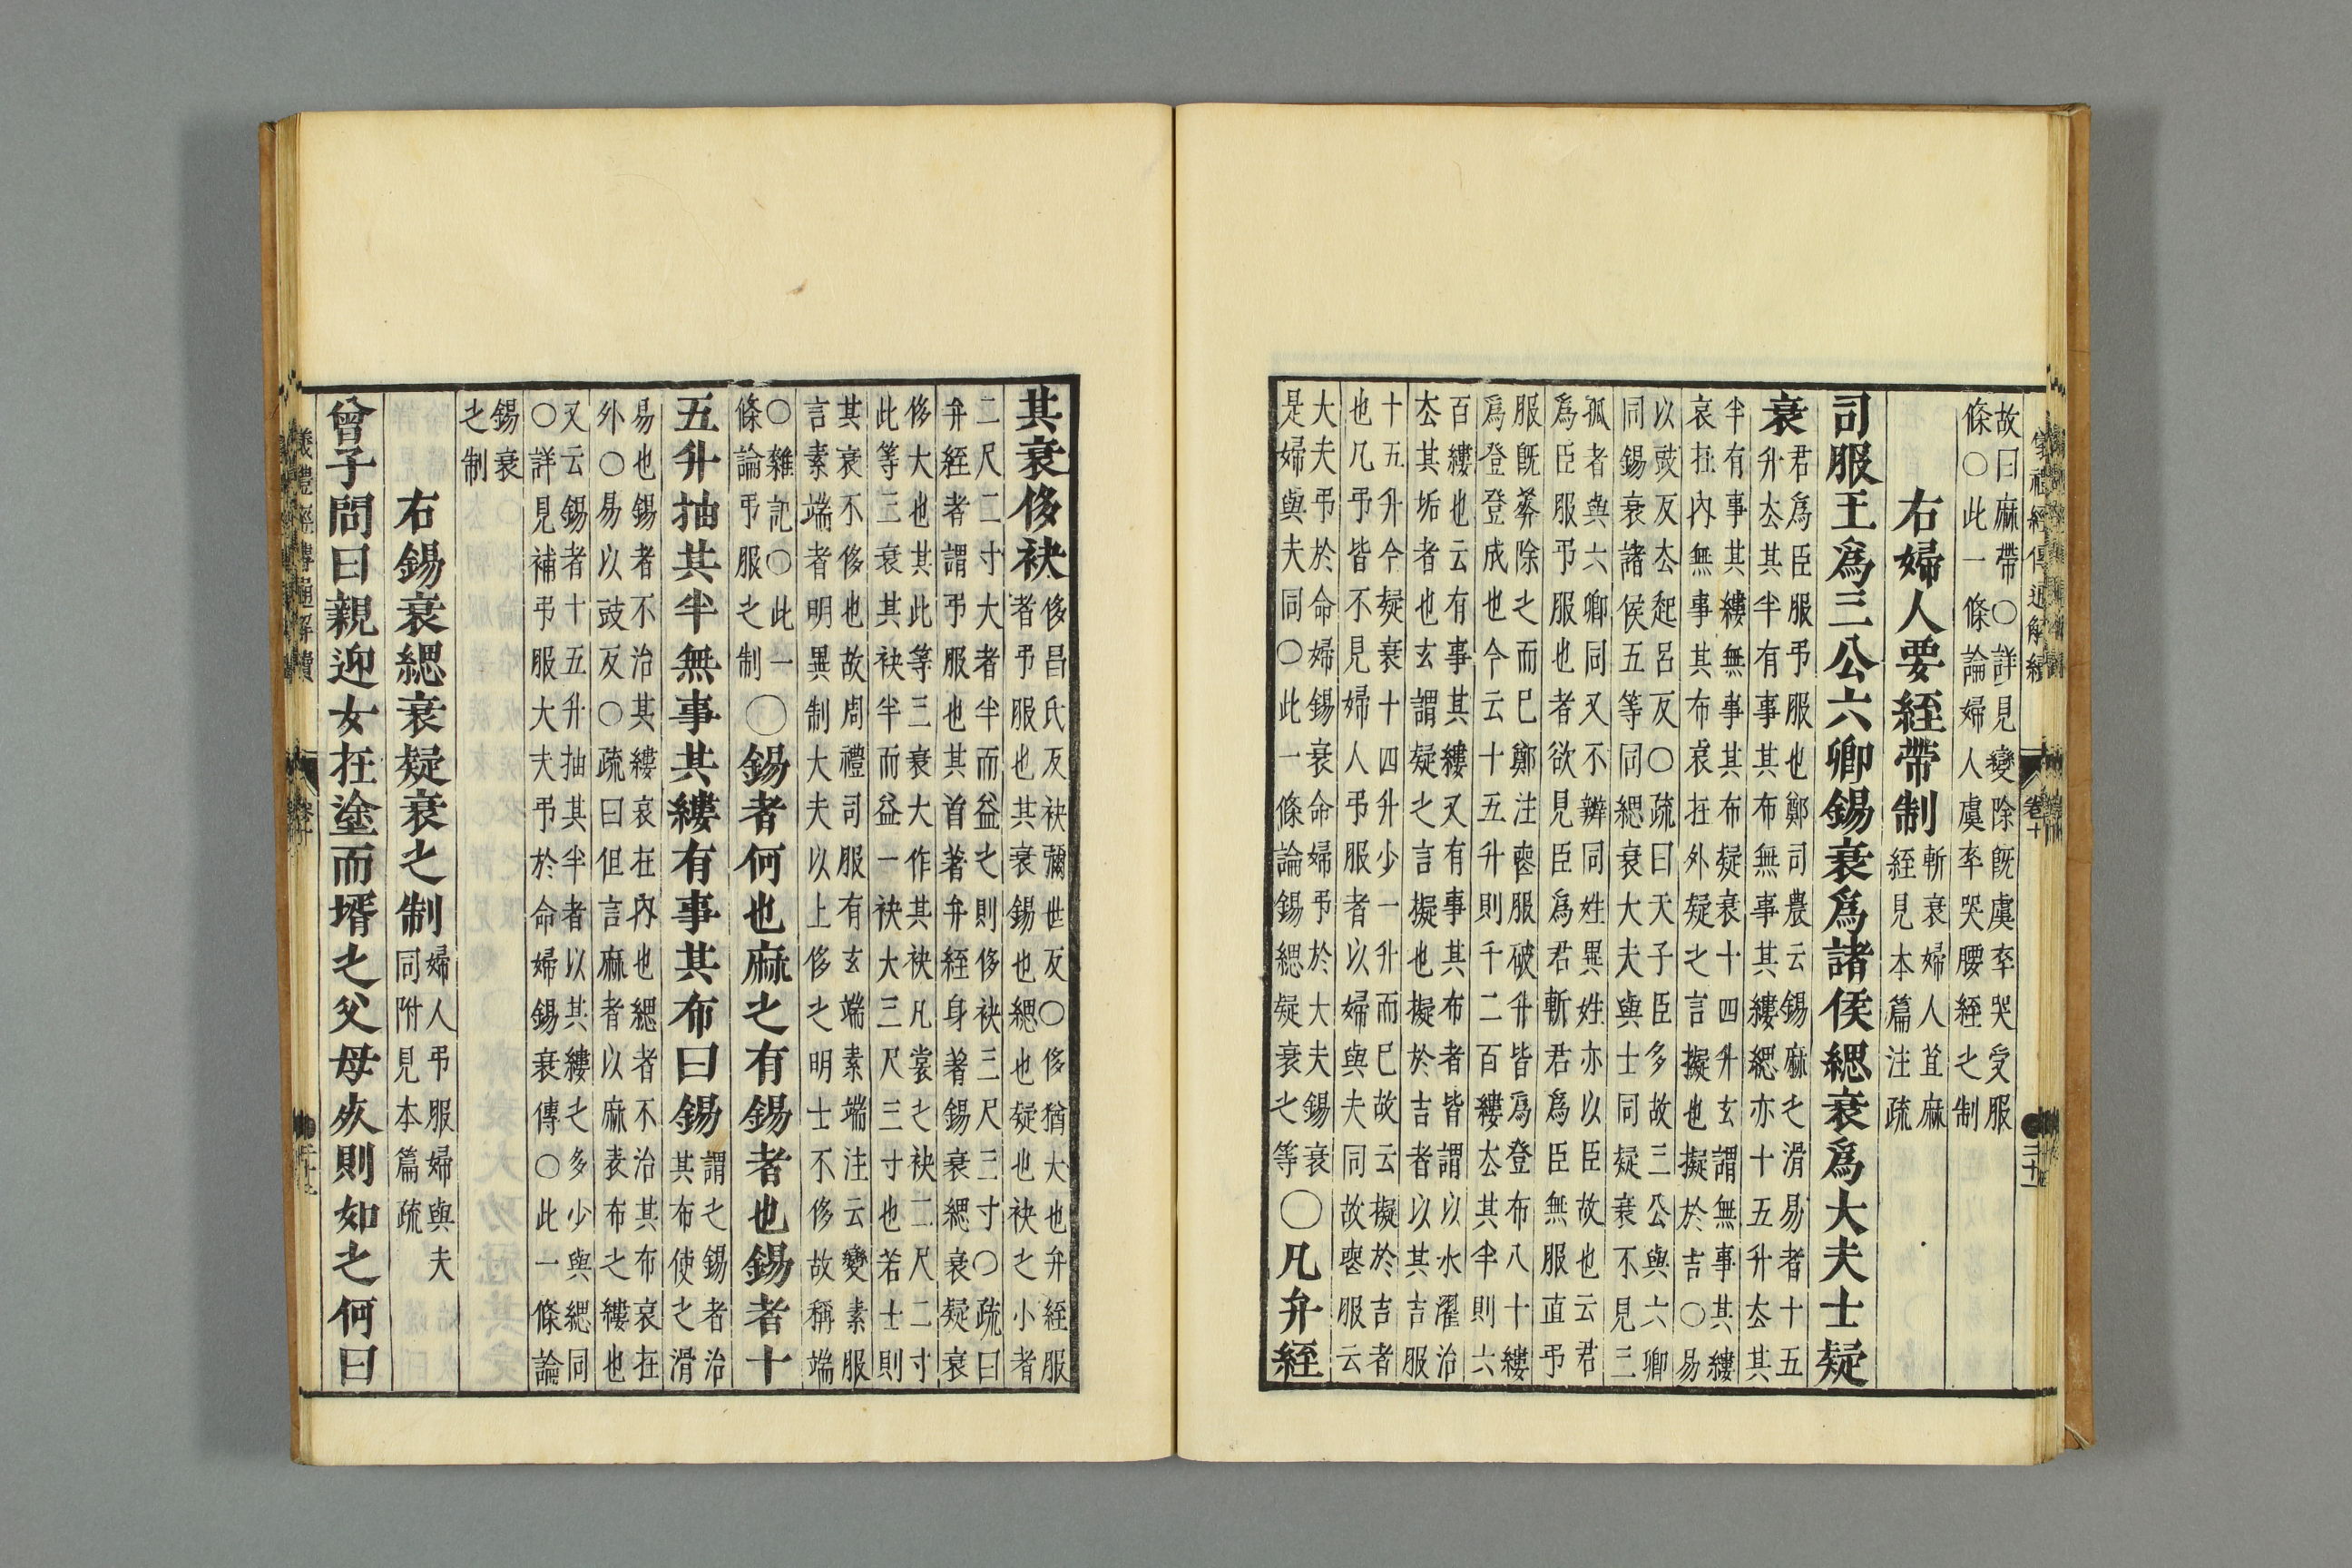 故曰麻帶〇詳見變除旣虞卒哭受服
條〇此一條論婦人虞卒哭腰絰之制
右婦人要絰帶制
斬衰婦人苴麻
絰見本篇注疏
司服王爲三公六卿錫衰爲諸侯緦衰爲大夫士疑
衰
君爲臣服弔服也鄭司農云錫麻之滑易者十五
升去其半有事其布無事其縷緦亦十五升去其
半有事其縷無事其布疑衰十四升玄謂無事其縷
哀在內無事其布哀在外疑之言擬也擬於吉〇易
以豉反去起呂反〇疏曰天子臣多故三公與六卿
同錫衰諸侯五等同緦衰大夫與士同疑衰不見三
孤者與六卿同又不辨同姓異姓亦以臣故也云君
爲臣服弔服也者欲見臣爲君斬君爲臣無服直弔
服旣葬除之而已鄭注喪服破升皆爲登布八十縷
爲登登成也今云十五升則千二百縷去其半則六
百縷也云有事其縷又有事其布者皆謂以水濯治
去其垢者也玄謂疑之言擬也擬於吉者以其吉服
十五升今疑衰十四升少一升而已故云擬於吉者
也凡弔皆不見婦人弔服者以婦與夫同故喪服云
大夫弔於命婦錫衰命婦弔於大夫錫衰
是婦與夫同〇此一條論錫緦疑衰之等
〇凡弁絰
卷十
其衰侈袂
侈昌氏反袂彌世反〇侈猶大也弁絰服
者弔服也其衰錫也緦也疑也袂之小者
二尺二寸大者半而益之則侈袂三尺三寸〇疏曰
弁絰者謂弔服也其首著弁絰身著錫衰緦衰疑衰
侈大也其此等三衰大作其袂凡常之袂二尺二寸
此等三衰其袂半而益一袂大三尺三寸也若士則
其衰不侈也故周禮司服有玄端素端注云變素服
言素端者明異制大夫以上侈之明士不侈故稱端
〇雜記〇此一
條論弔服之制
〇錫者何也麻之有錫者也錫者十
五升抽其半無事其縷有事其布曰錫
謂之錫者治
其布使之滑
易也錫者不治其縷哀在內也緦者不治其布哀在
外〇易以豉反〇疏曰但言麻者以麻表布之縷也
又云錫者十五升抽其半者以其縷之多少與緦同
〇詳見補弔服大夫弔於命婦錫衰傳〇此一條論
錫衰
之制
右錫衰緦衰疑衰之制
婦人弔服婦與夫
同附見本篇疏
曾子問曰親迎女在塗而壻之父母死則如之何曰